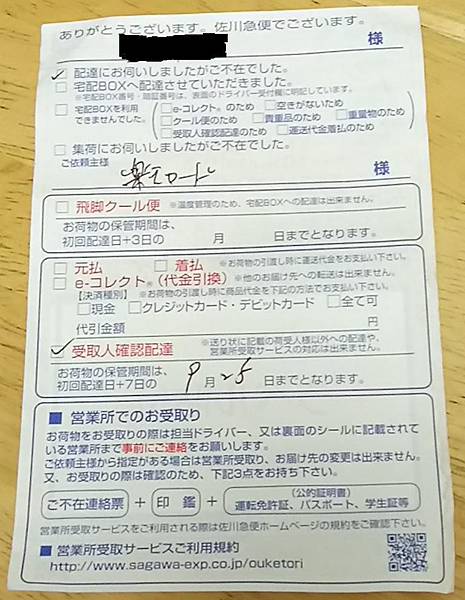 ありがとうございます。佐川急便でございます。
様
✓ 配達にお伺いしましたがご不在でした。
□ 宅配BOXへ配達させていただきました。
※宅配BOX番号・暗証番号は、表面のドライバー受付欄に明記しています。
□ 宅配BOXを利用できませんでした。
□ e-コレクト®のため □ 空きがないため
□ クール便のため □ 貴重品のため □ 重量物のため
□ 受取人確認配達のため □ 運送代金着払のため
□ 集荷にお伺いしましたがご不在でした。
ご依頼主様
楽天カード 様
□ 飛脚クール便 ※温度管理のため、宅配BOXへの配達は出来ません。
お荷物の保管期間は、
初回配達日+3日の 月 日までとなります。
□ 元払 □ 着払 ※お荷物の引渡し時に運送代金をお支払い下さい。
□ e-コレクト®(代金引換) ※他のお届け先への転送は出来ません。
【決済種別】 ※お荷物の引渡し時に商品代金を下記の方法でお支払い下さい。
□ 現金 □ クレジットカード・デビットカード □ 全て可
代引金額 円
✓ 受取人確認配達 ※送り状に記載の荷受人様以外への配達や、
営業所受取サービスの対応は出来ません。
お荷物の保管期間は、
初回配達日+7日の 9 月 25 日までとなります。
■ 営業所でのお受取り
お荷物をお受取りの際は担当ドライバー、又は裏面のシールに記載されて
いる営業所まで事前にご連絡をお願いします。
ご依頼主様から指定がある場合は営業所受取り、お届け先の変更は出来ません。
又、お受取りの際は確認のため、下記3点をお持ち下さい。
ご不在連絡票 + 印 鑑 + (公的証明書)
運転免許証、パスポート、学生証等
営業所受取サービスをご利用される際は佐川急便ホームページの規約をご確認下さい。
■ 営業所受取サービスご利用規約
http://www.sagawa-exp.co.jp/ouketori